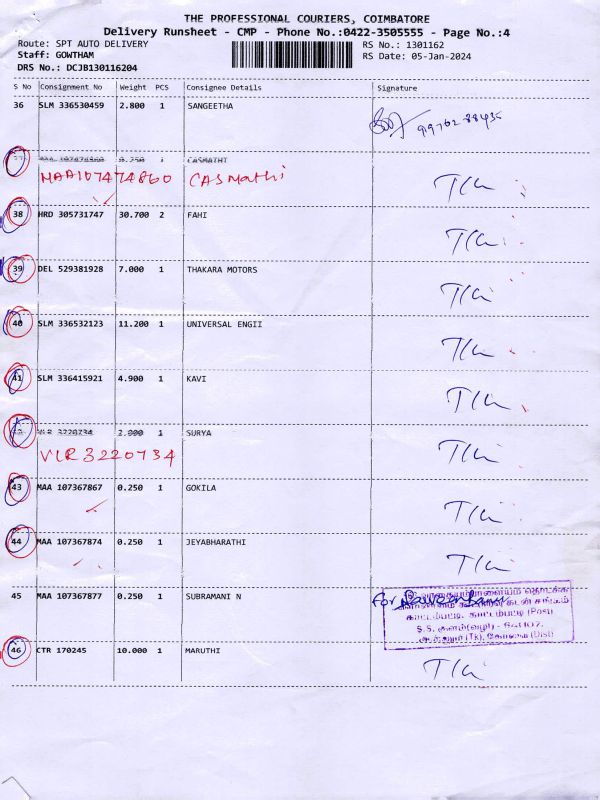 THE PROFESSIONAL COURIERS, COIMBATORE
Delivery Runsheet - CMP - Phone No.:0422-3505555 - Page No.:4
Route: SPT AUTO DELIVERY RS No.: 1301162
Staff: GOWTHAM RS Date: 05-Jan-2024
DRS No.: DCJB130116204
S No Consignment No Weight PCS Consignee Details Signature
36 SLM 336530459 2.800 1 SANGEETHA
37 MAA 107474860 0.250 1 CASMATHI
MAA107474860 CASMathi
38 HRD 305731747 30.700 2 FAHI
39 DEL 529381928 7.000 1 THAKARA MOTORS
40 SLM 336532123 11.200 1 UNIVERSAL ENGII
41 SLM 336415921 4.900 1 KAVI
42 VLR 3220734 2.000 1 SURYA
VLR3220734
43 MAA 107367867 0.250 1 GOKILA
44 MAA 107367874 0.250 1 JEYABHARATHI
45 MAA 107367877 0.250 1 SUBRAMANI N For
காட்டம்பட்டி, காட்டம்பட்டி (Post)
46 CTR 170245 10.000 1 MARUTHI